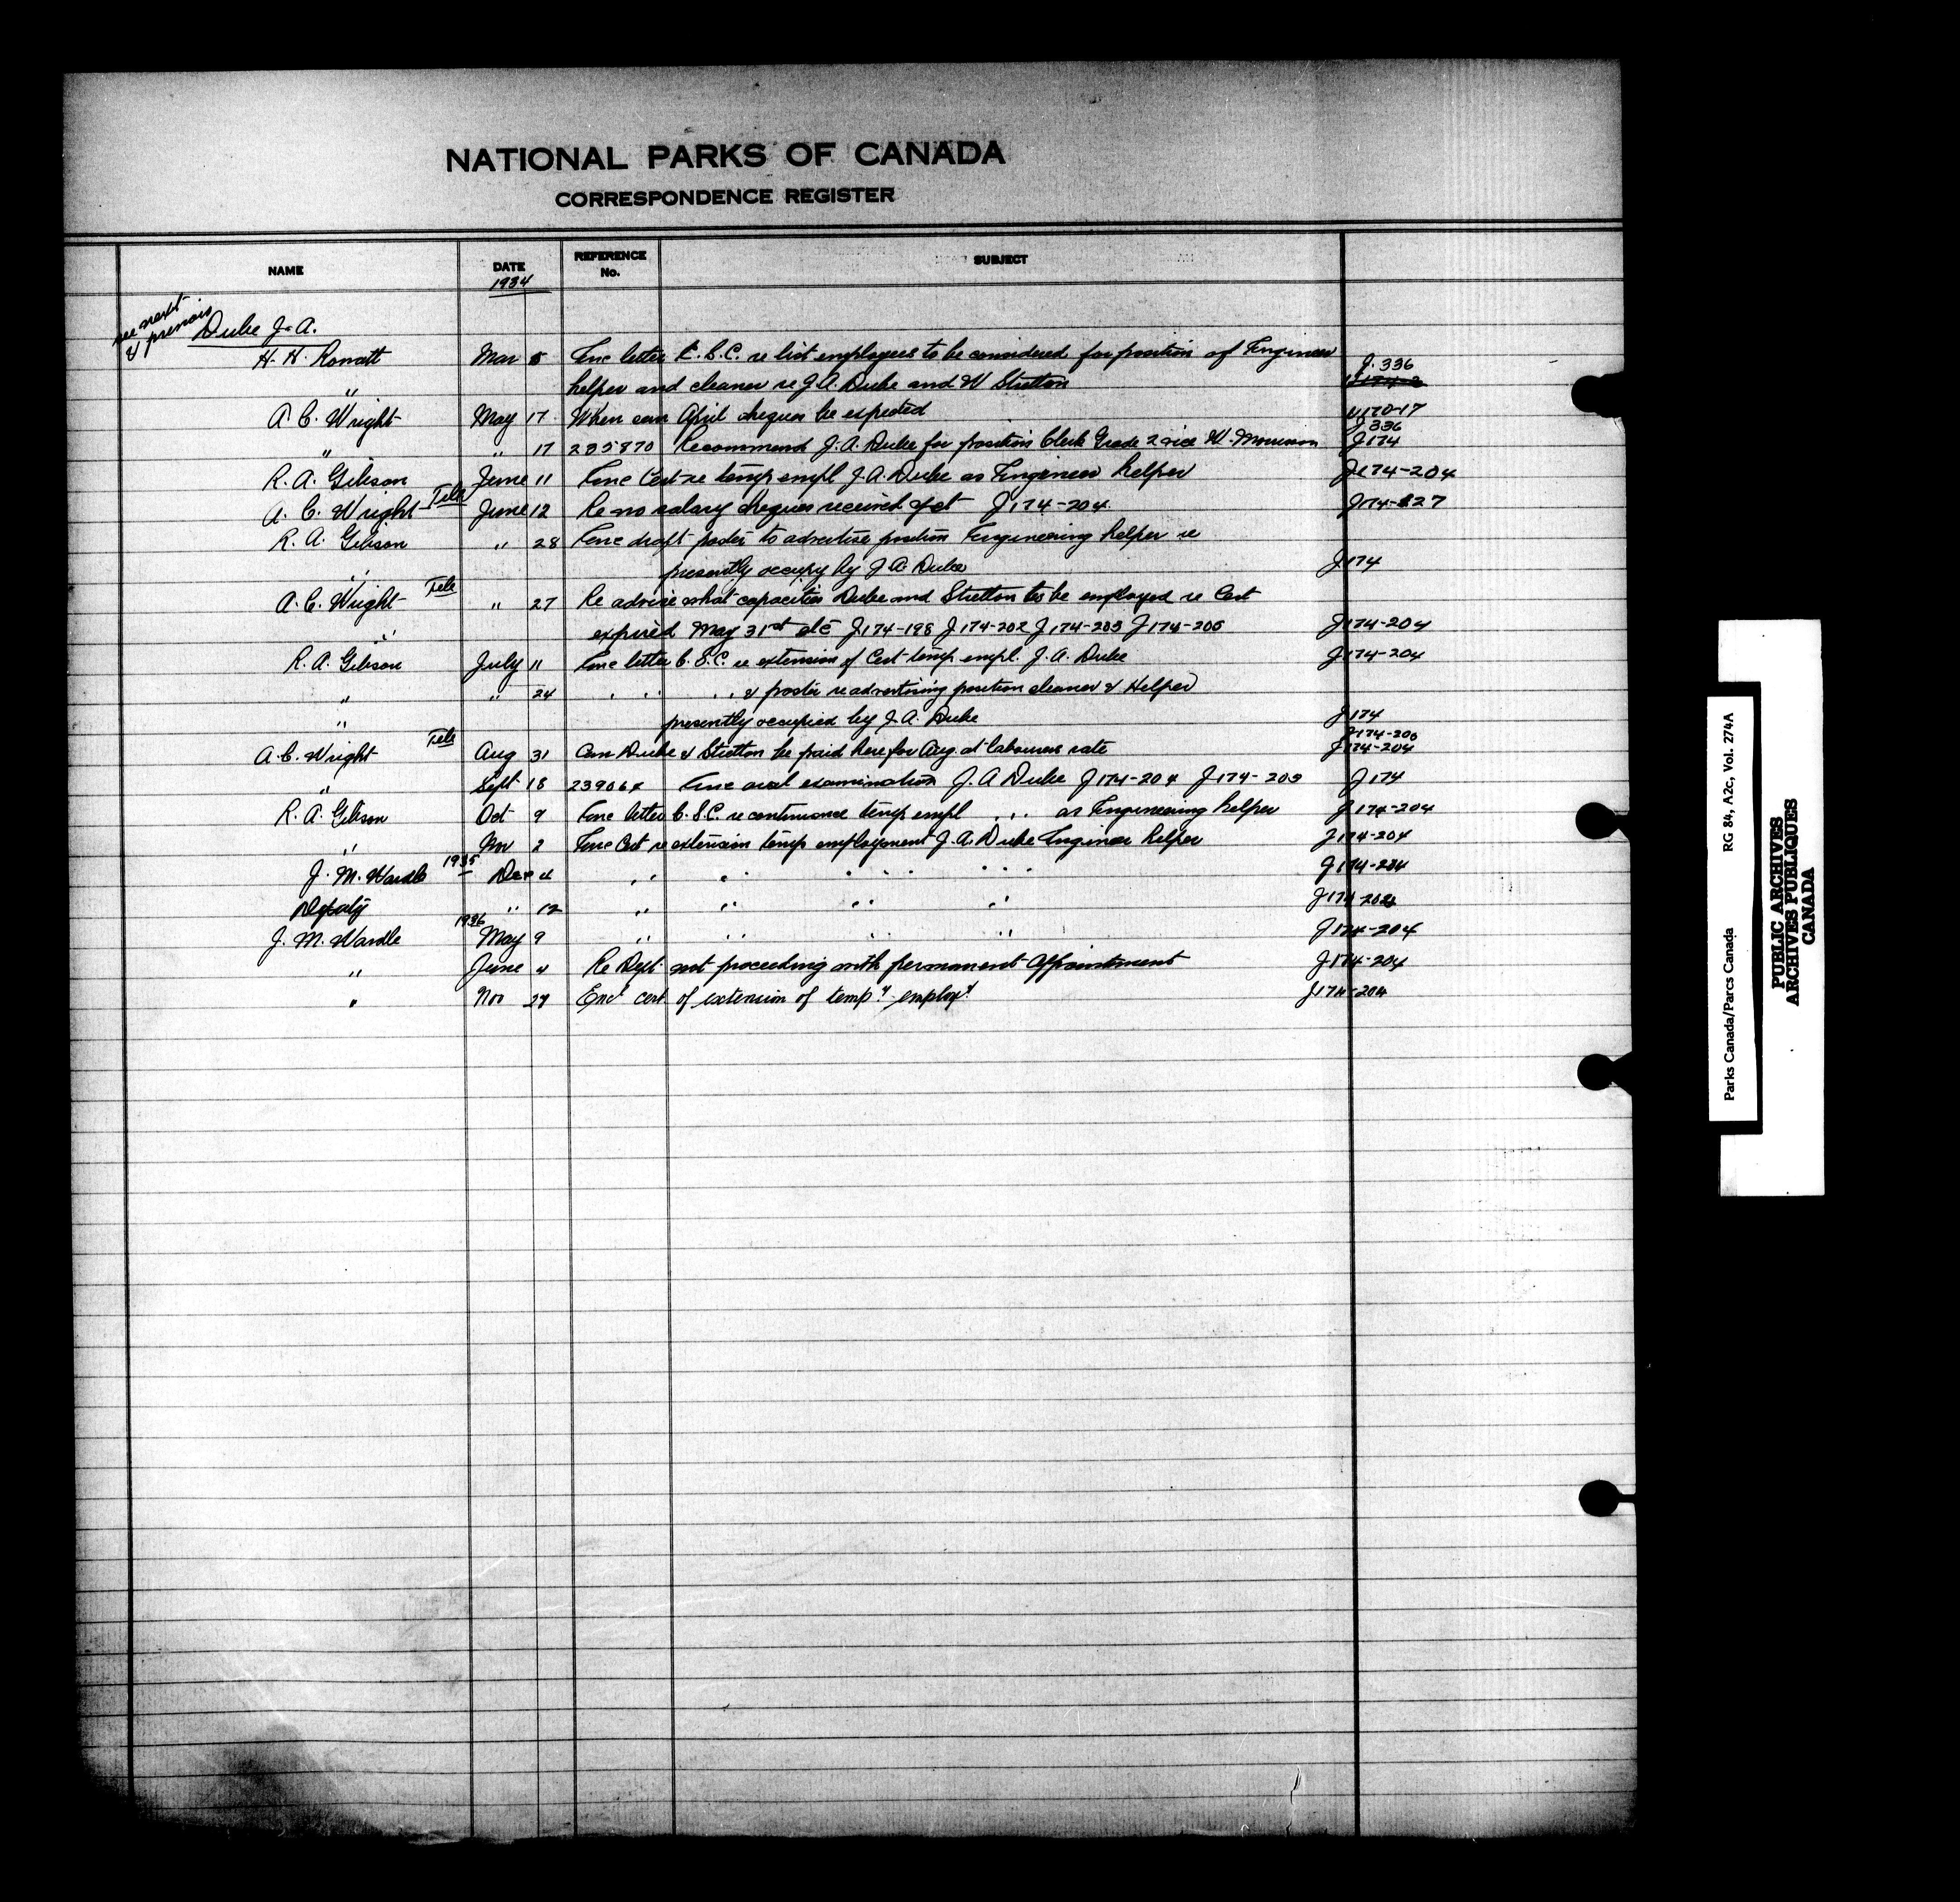 NATIONAL PARKS OF CANADA
CORRESPONDENCE REGISTER
NAME DATE REFERENCE No. SUBJECT
1934
see next & previous
Duke J. A.
H. H. Rowatt Mar 5 Enc letter C.S.C. re list employees to be considered for position of Engineer J. 336
" helper and cleaner re J.A. Duke and W Stretton
A. C. Wright May 17 When can April cheques be expected U170-17
J336
" " 17 235870 Recommend J.A. Duke for position Clerk Grade 2 vice W. Morrison J174
R. A. Gibson June 11 Enc Cert re temp empl J.A. Duke as Engineer helper J174-204
A. C. Wright Tele June 12 Re no salary cheques received yet J174-204 J174-227
R. A. Gibson " 28 Enc draft poster to advertise position Engineering helper re
" presently occupy by J.A. Duke J174
A. C. Wright Tele " 27 Re advise what capacities Duke and Stretton to be employed re Cert
" expired May 31st etc J174-198 J174-202 J174-203 J174-205 J174-204
R. A. Gibson July 11 Enc letter C.S.C. re extension of Cert temp empl. J. A. Duke J174-204
" " 24 " " " & poster re advertising position cleaner & Helper
" presently occupied by J. A. Duke J174
J174-203
A. C. Wright Tele Aug 31 Can Duke & Stretton be paid here for Aug. at labourers rate J174-204
" Sept 18 239064 Enc oral examination J. A Duke J174-204 J174-203 J174
R. A. Gibson Oct 9 Enc letter C.S.C. re continuance temp empl " " as Engineering helper J174-204
" Nov 2 Enc Cert re extension temp employment J.A. Duke Engineer helper J174-204
J. M. Wardle 1935 Dec 4 " " " " J174-204
Deputy " 12 " " " " J174-204
J. M. Wardle 1936 May 9 " " " " J174-204
" June 4 Re Dept. not proceeding with permanent appointment J174-204
" Nov 27 Encl cert of extension of tempy employt J174-204
Parks Canada/Parcs Canada RG 84, A2c, Vol. 274A
PUBLIC ARCHIVES
ARCHIVES PUBLIQUES
CANADA